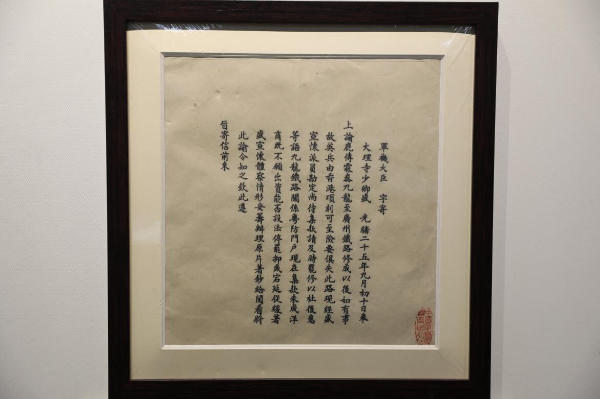 軍機大臣 字寄
大理寺少卿盛 光緒二十五年九月初十日奉
上諭鹿傳霖奏九龍至廣州鐵路修成以後如有事
故英兵由香港頃刻可至險要俱失此路現經盛
宣懷派員勘定尚待集款請及時罷修以杜後患
等語九龍鐵路關係粵防門戶現在集款未成洋
商既不願出資能否設法停罷抑或宕延從緩著
盛宣懷體察情形妥籌辦理原片著鈔給閱看將
此諭令知之欽此遵
旨寄信前來